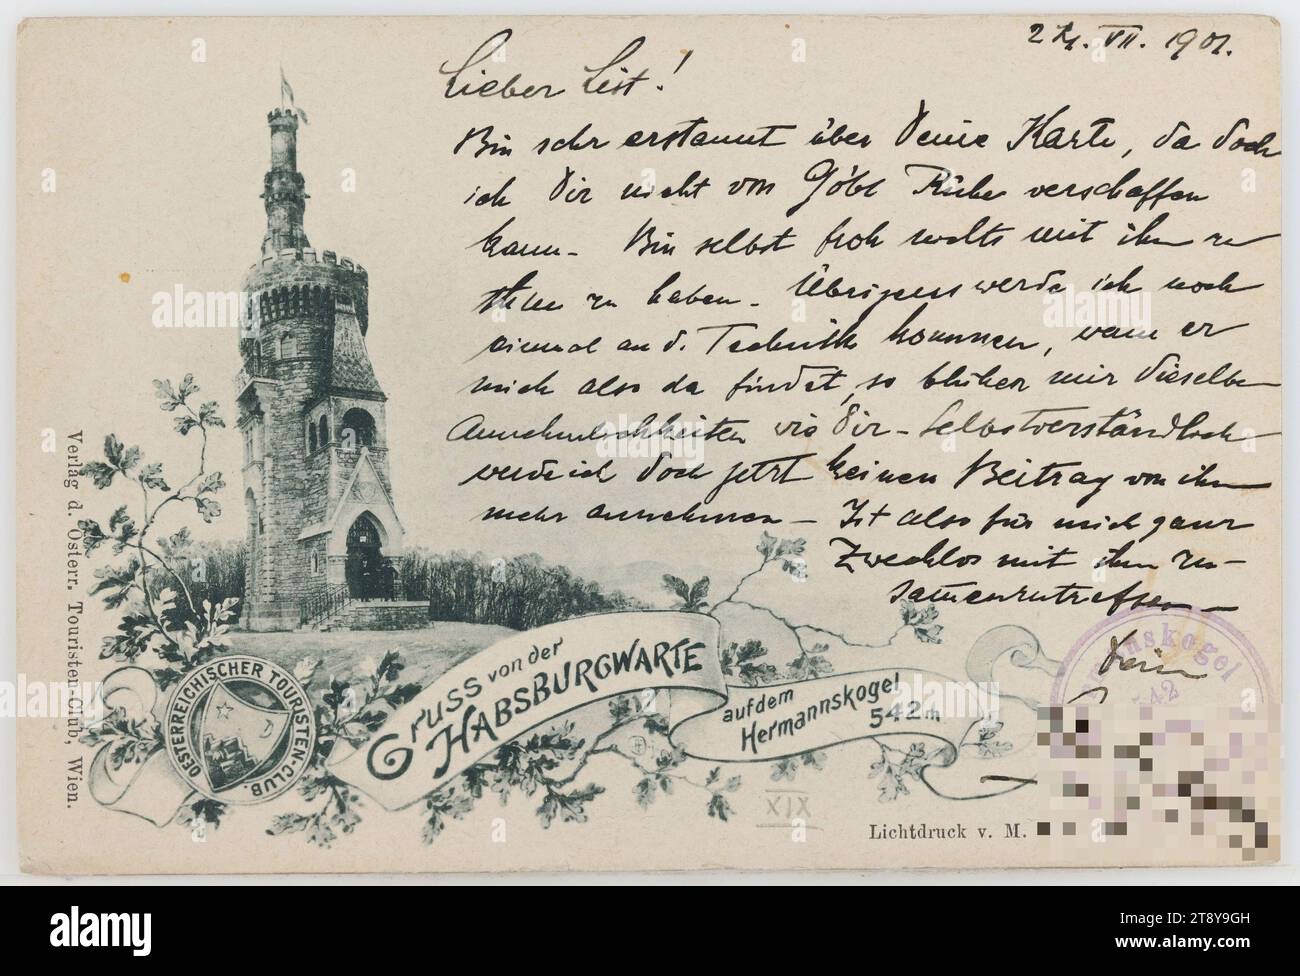 VII. 1901.
Lieber List!
Bin sehr erstaunt über Deine Karte, da doch
ich Dir nicht von Göbl Ruhe verschaffen
kann. Bin selbst froh nichts mit ihm zu
thun zu haben. Übrigens werde ich noch
einmal an d. Technik kommen, wenn er
mich also da findet, so blühen mir dieselben
Annehmlichkeiten wie Dir – Selbstverständlich
werde ich doch jetzt keinen Beitrag von ihm
mehr annehmen – Ist also für mich ganz
Zwecklos mit ihm zu-
sammenzutreffen –
Dein
Verlag d. Österr. Touristen-Club, Wien.
OESTERREICHISCHER TOURISTEN-CLUB.
Gruss von der
HABSBURGWARTE
auf dem
Hermannskogel
542 m
542
XIX
Lichtdruck v. M.
alamy
Image ID: 2T8Y9GH
www.alamy.com